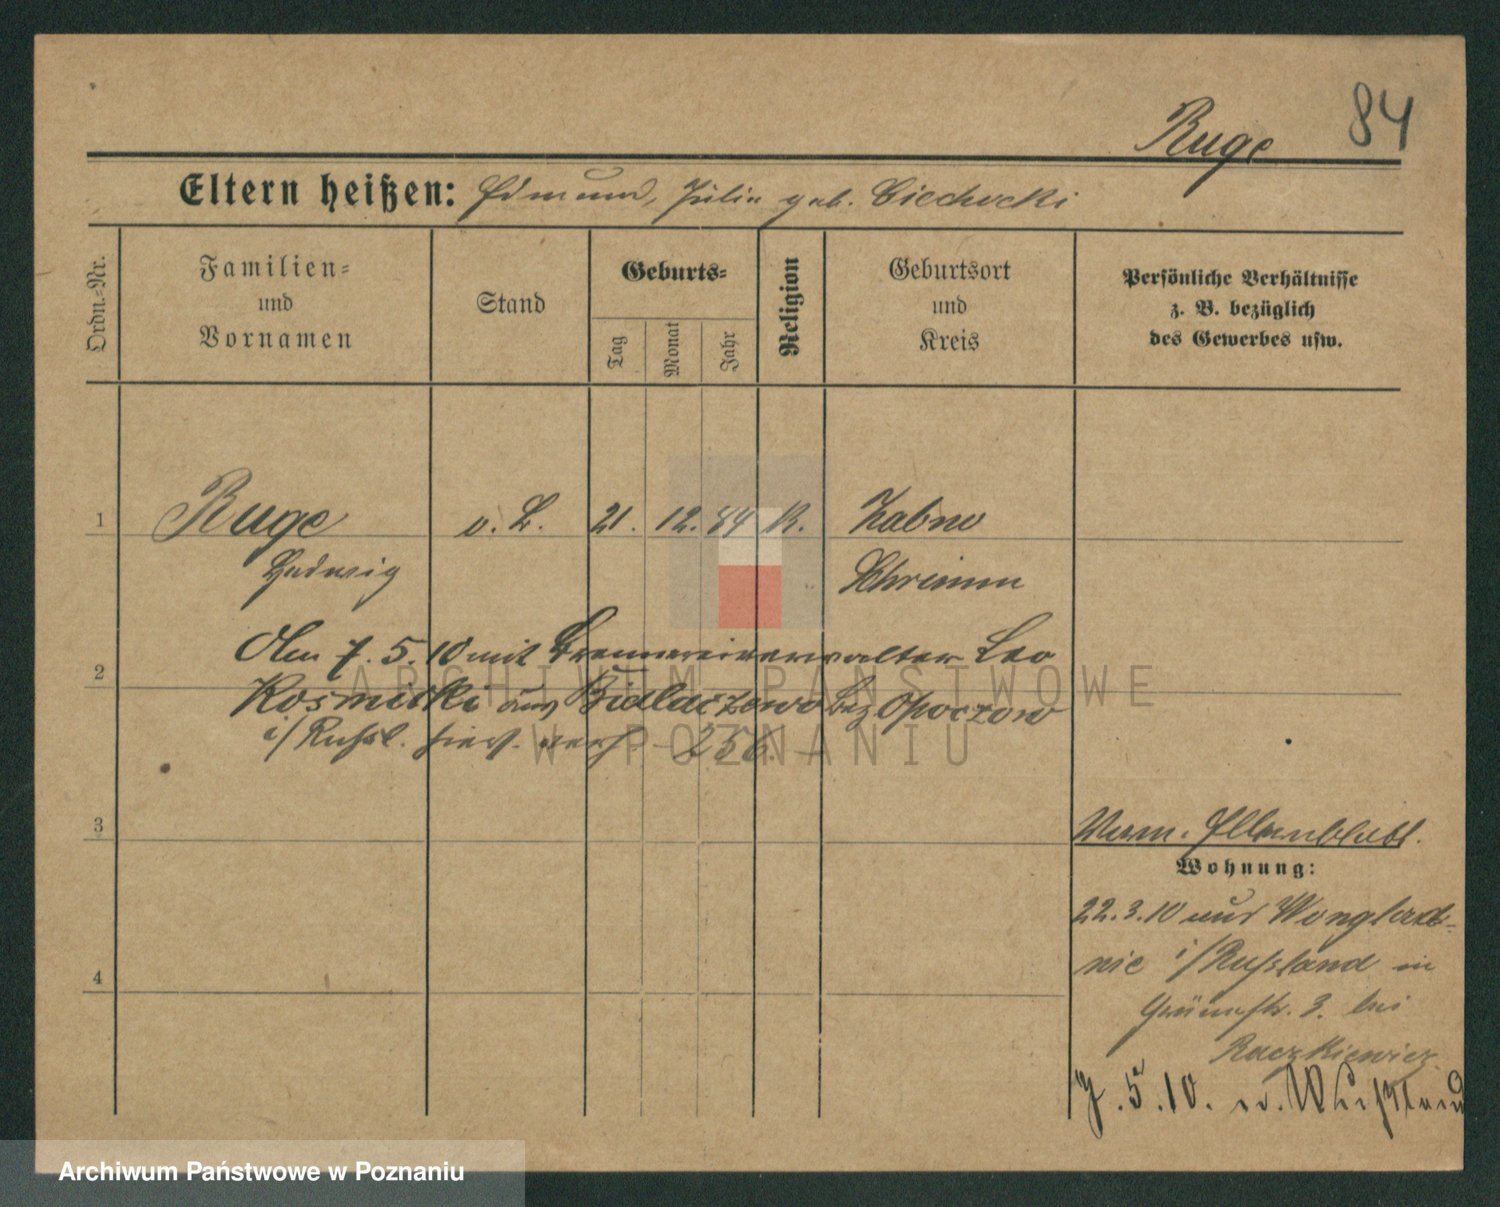 84
Ruge
Eltern heißen: Edmund, Julie geb. Ciechocki
Ordn.-Nr.
Familien-
und
Vornamen
Stand
Geburts-
Tag
Monat
Jahr
Religion
Geburtsort
und
Kreis
Persönliche Verhältnisse
z. B. bezüglich
des Gewerbes usw.
1 Ruge o. B. 21. 12. 84 K. Zabno
Hedwig Schrimm
Am 7. 5. 10 mit Brennereiverwalter Leo
2
Kosmicki aus Bez Opoczow
i/Russl. hier verh. 256.
3
Verm.
Wohnung:
22.3.10 aus
nie i/Russland in
Grünestr. 3. bei
4
Raczkiewicz
7.5.10.
ARCHIWUM PAŃSTWOWE
W POZNANIU
Archiwum Państwowe w Poznaniu